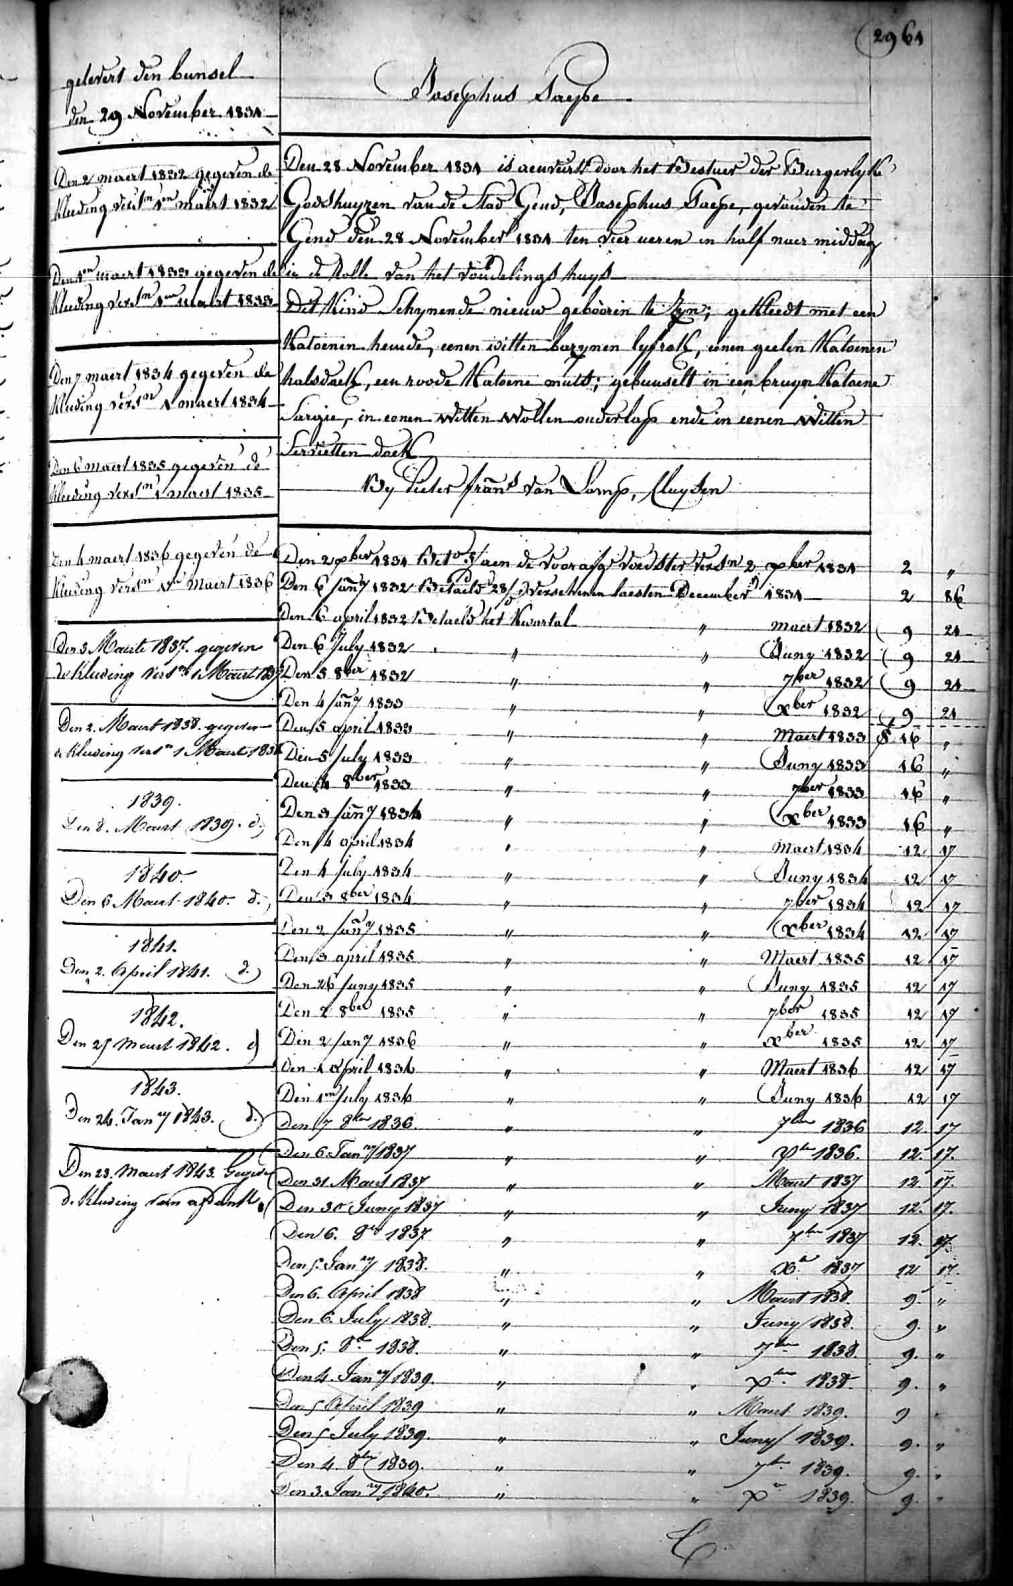 2961
gelevert den bunsel
den 29 November 1831
Josephus Taepe
Den 2 maert 1832 gegeven de
kleeding verst.n 1en maert 1832
Den 1en maert 1833 gegeven de
kleeding verst.n 1en maart 1833
Den 7 maert 1834 gegeven de
kleeding verst.n 1 maert 1834
Den 6 maert 1835 gegeven de
kleeding verst.n 1 maert 1835
Den 4 maert 1836 gegeven de
kleeding verst.n 1en maert 1836
Den 3 Maerte 1837. gegeven
de kleeding verst.n 1 Maert 1837
Den 2. Maert 1838. gegeven
de kleeding verst.n 1 Maert 1838
1839.
Den 8. Maart 1839. d.
1840.
Den 6 Maert 1840. d.
1841.
Den 2. April 1841. d.
1842.
Den 25 Maert 1842. d
1843.
Den 24. Jan.ry 1843. d.
Den 23. Maert 1843. Gegeven
de kleeding van afdank
Den 28 November 1831 is aenveirt door het Bestuer der Burgerlyke
Godshuyzen van de Stad Gend, Josephus Taepe, gevonden te
Gend den 28 November 1831 ten vier ueren en half naer middag
in de Rolle van het vondelingshuys
Det Kind Schynende nieuw geboorin te Zyn; gekleedt met een
Katoenin hemde, eenen witten bazynen lyfrok, eenen geelen Katoenen
halsdoek, een roode Katoene muts; gebunselt in een bruyn Katoene
Sargie, in eenen witten wollen onderlap ende in eenen witten
Servietten doek
By Pieter frans van Lomp, Cluysen
Den 2 xber 1831 Bet. aen de voorafg. voedster verst.n 2 xber 1831 2 "
Den 6 Jan.ry 1832 Betaeld 28 d. verschenen laesten December 1831 2 86
Den 6 april 1832 Betaeld het Kwartal " maert 1832 9 21
Den 6 July 1832 " " Juny 1832 9 21
Den 5 8ber 1832 " " 7ber 1832 9 21
Den 4 Jan.ry 1833 " " xber 1832 9 21
Den 5 april 1833 " " Maert 1833 f 16 "
Den 5 July 1833 " " Juny 1833 16 "
Den 4 8ber 1833 " " 7ber 1833 16 "
Den 3 Jan.ry 1834 " " xber 1833 16 "
Den 4 april 1834 " " Maert 1834 12 17
Den 4 July 1834 " " Juny 1834 12 17
Den 3 8ber 1834 " " 7ber 1834 12 17
Den 2 Jan.ry 1835 " " xber 1834 12 17
Den 3 april 1835 " " Maert 1835 12 17
Den 26 Juny 1835 " " Juny 1835 12 17
Den 2 8ber 1835 " " 7ber 1835 12 17
Den 2 Jan.ry 1836 " " xber 1835 12 17
Den 1 april 1836 " " Maert 1836 12 17
Den 1en July 1836 " " Juny 1836 12 17
Den 7 8ber 1836 " " 7ber 1836 12. 17
Den 6 Jan.ry 1837 " " xber 1836. 12. 17.
Den 31 Maert 1837 " " Maert 1837 12 17.
Den 30 Juny 1837 " " Juny 1837 12. 17.
Den 6. 8ber 1837. " " 7ber 1837 12. 17
Den 5. Jan.ry 1838. " " xber 1837 12 17.
Den 6. April 1838 " " Maert 1838. 9. "
Den 6. July 1838. " " Juny 1838. 9. "
Den 5. 8ber 1838. " " 7ber 1838. 9. "
Den 4. Jan.ry 1839. " " xber 1838. 9. "
Den 5 April 1839 " " Maert 1839. 9 "
Den 5 July 1839. " " Juny 1839. 9. "
Den 4. 8ber 1839. " " 7ber 1839. 9. "
Den 3. Jan.ry 1840. " " xber 1839. 9. "